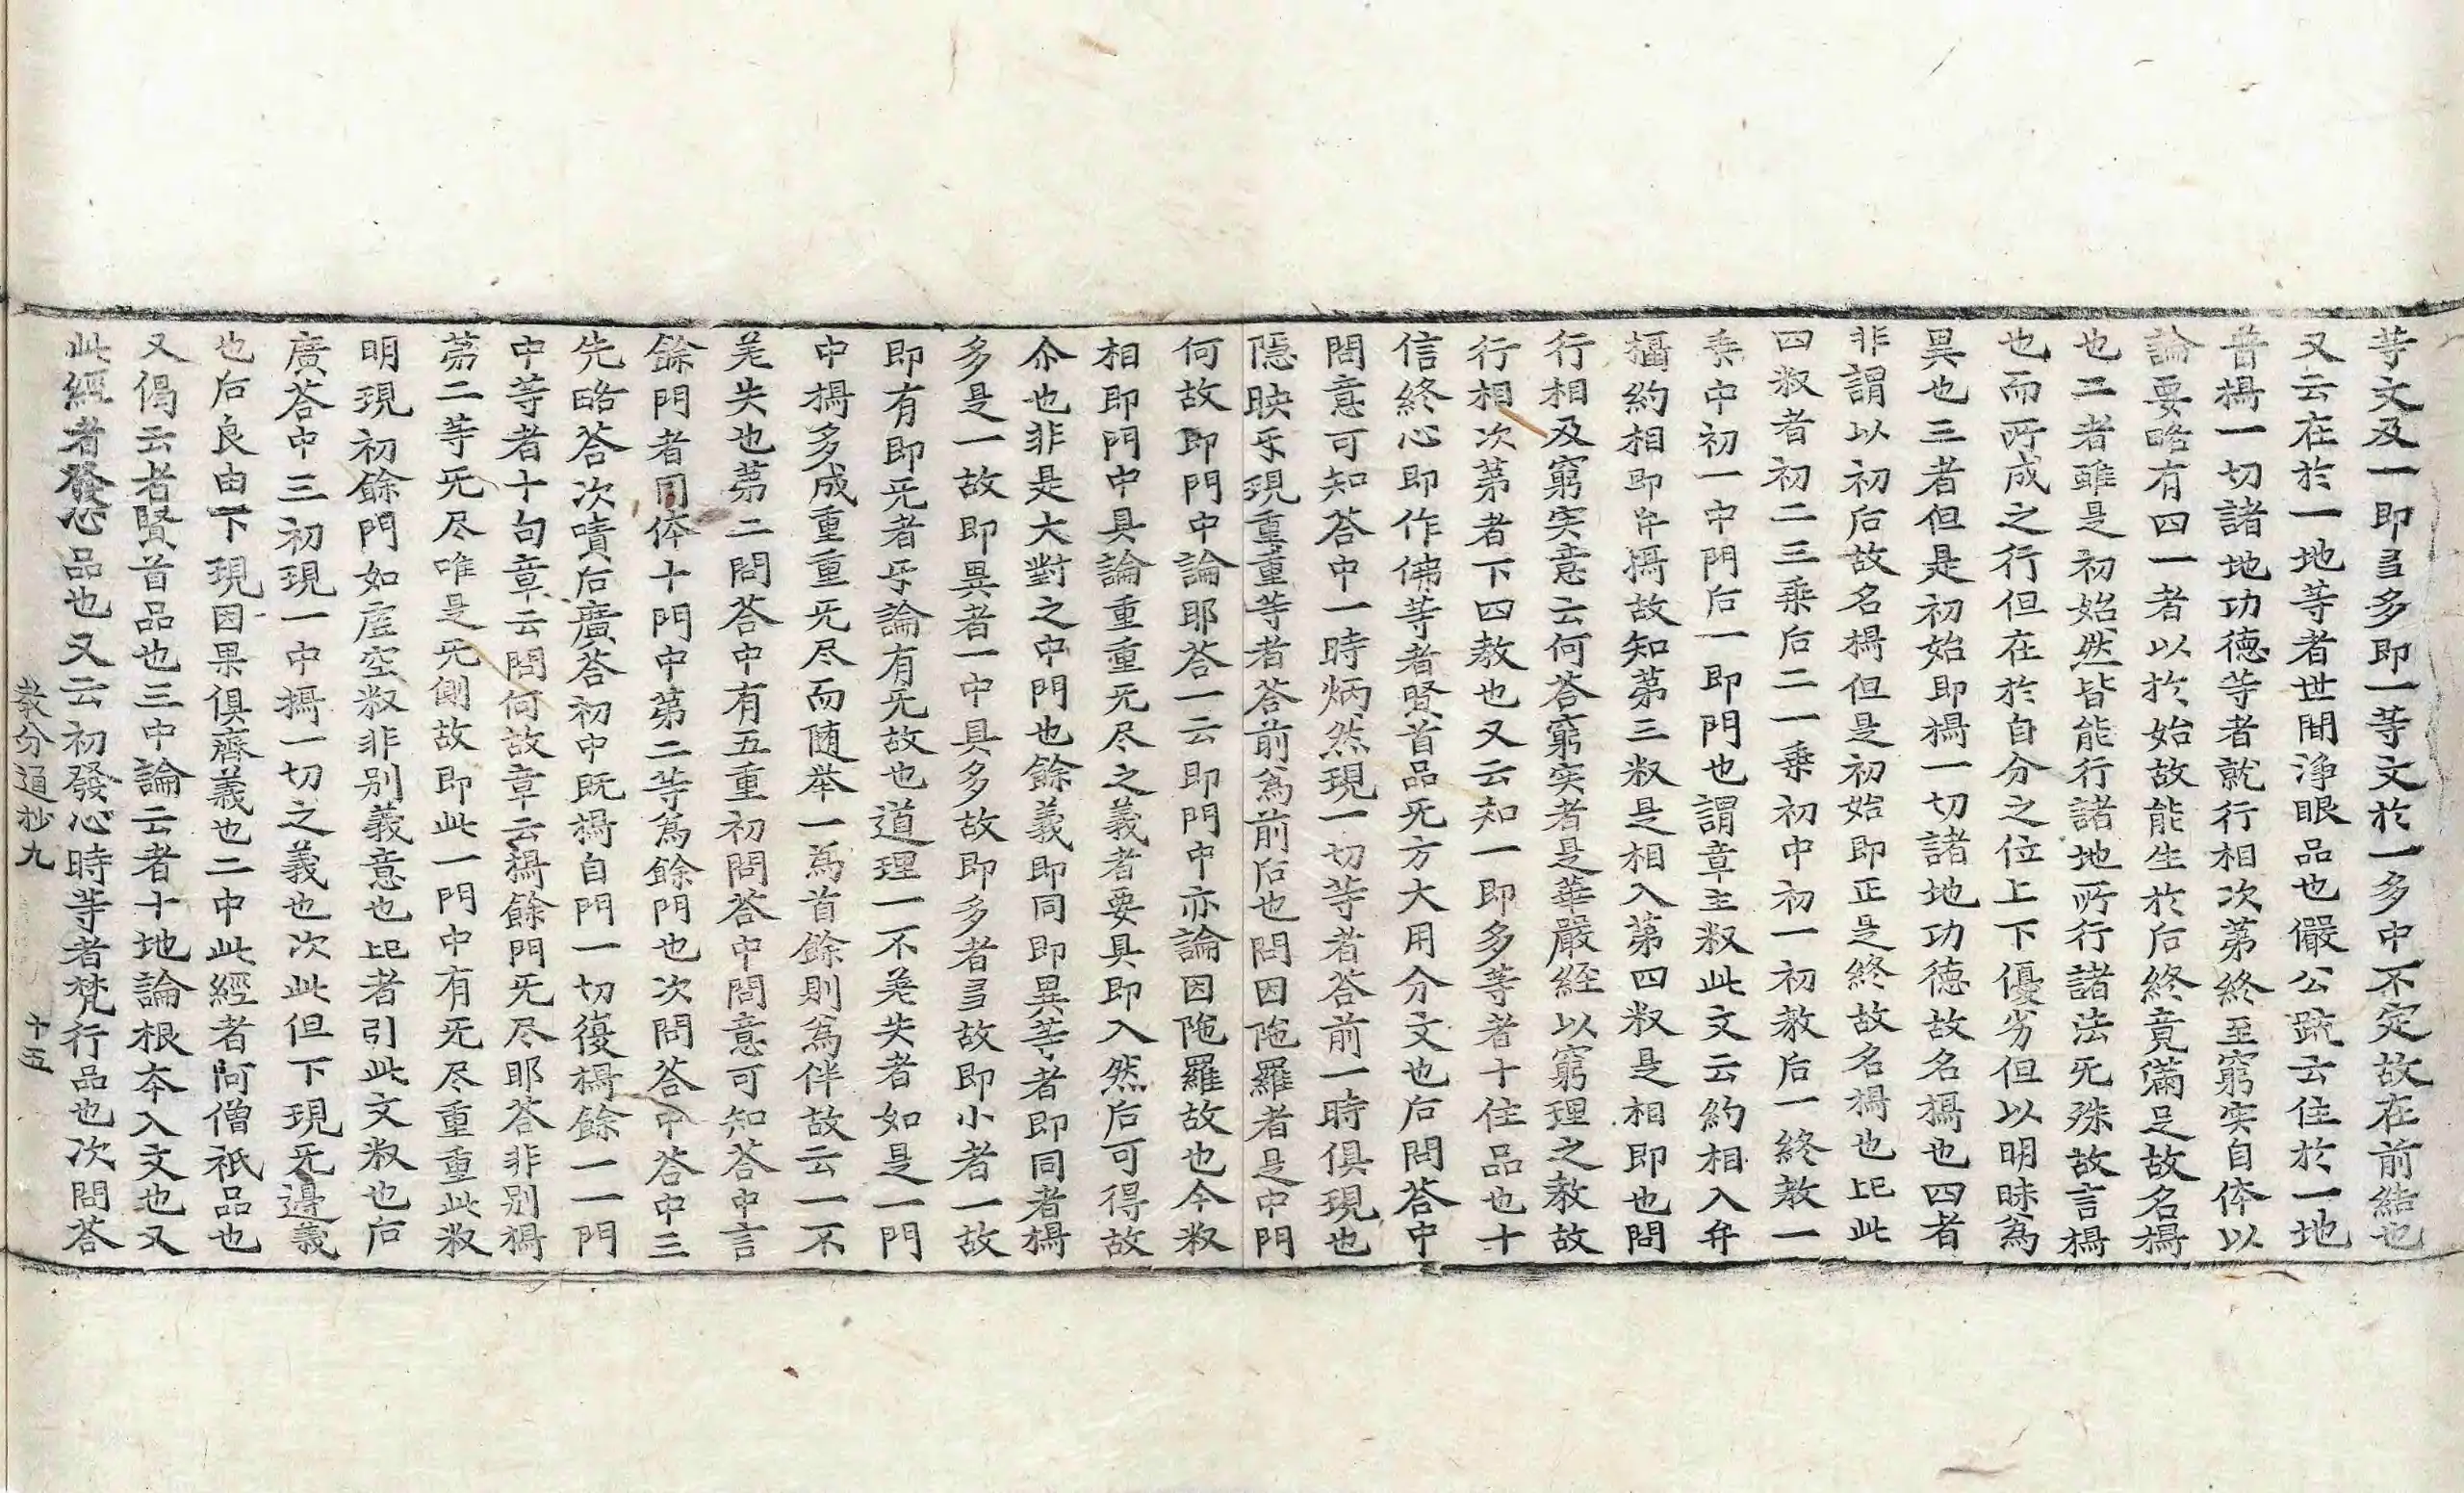 等文及一即{{?}}多即一等文於一多中不定故在前結也
又云在於一地等者世間淨眼品也儼公䟽云住於一地
普攝一切諸地功德等者就行相次苐終至窮实自体以
論要略有四一者以於始故能生於后終竟滿足故名攝
也二者雖是初始然皆能行諸地所行諸法旡殊故言攝
也而所成之行但在於自分之位上下優劣但以明昧為
異也三者但是初始即攝一切諸地功德故名攝也四者
非謂以初后故名攝但是初始即正是終故名攝也记此
四敎者初二三乘后二一乘初中初一初教后一終教一
乘中初一中門后一即門也謂章主敎此文云約相入弁
攝約相即弁攝故知苐三敎是相入苐四敎是相即也問
行相及窮实意云何答窮实者是華嚴経以窮理之教故
行相次苐者下四教也又云知一即多等者十住品也十
信終心即作佛等者賢首品旡方大用分文也后問答中
問意可知答中一時炳然現一切等者答前一時俱現也
隱映{{?}}現重重等者答前爲前后也問因陁羅者是中門
何故即門中論耶答一云即門中亦論因陁羅故也今敎
相即門中具論重重旡尽之義者要具即入然后可得故
尒也非是大對之中門也餘義即同即異等者即同者攝
多是一故即異者一中具多故即多者{{?}}故即小者一故
即有即旡者{{?}}論有旡故也道理一不差失者如是一門
中攝多成重重旡尽而随举一爲首餘則爲伴故云一不
差失也苐二問答中有五重初問答中問意可知答中言
餘門者同体十門中苐二等爲餘門也次問答中答中三
先略答次嘖后廣答初中既攝自門一切復攝餘一一門
中等者十句章云問何故章云攝餘門旡尽耶答非别攝
苐二等旡尽唯是旡側故即此一門中有旡尽重重此敎
明現初餘門如虛空敎非别義意也记者引此文敎也后
廣答中三初現一中攝一切之義也次此但下現旡邉義
也后良由下現因果俱齊義也二中此經者阿僧祇品也
又偈云者賢首品也三中論云者十地論根夲入文也又
此經者發心品也又云初發心時等者梵行品也次問答
教分通抄九　十五